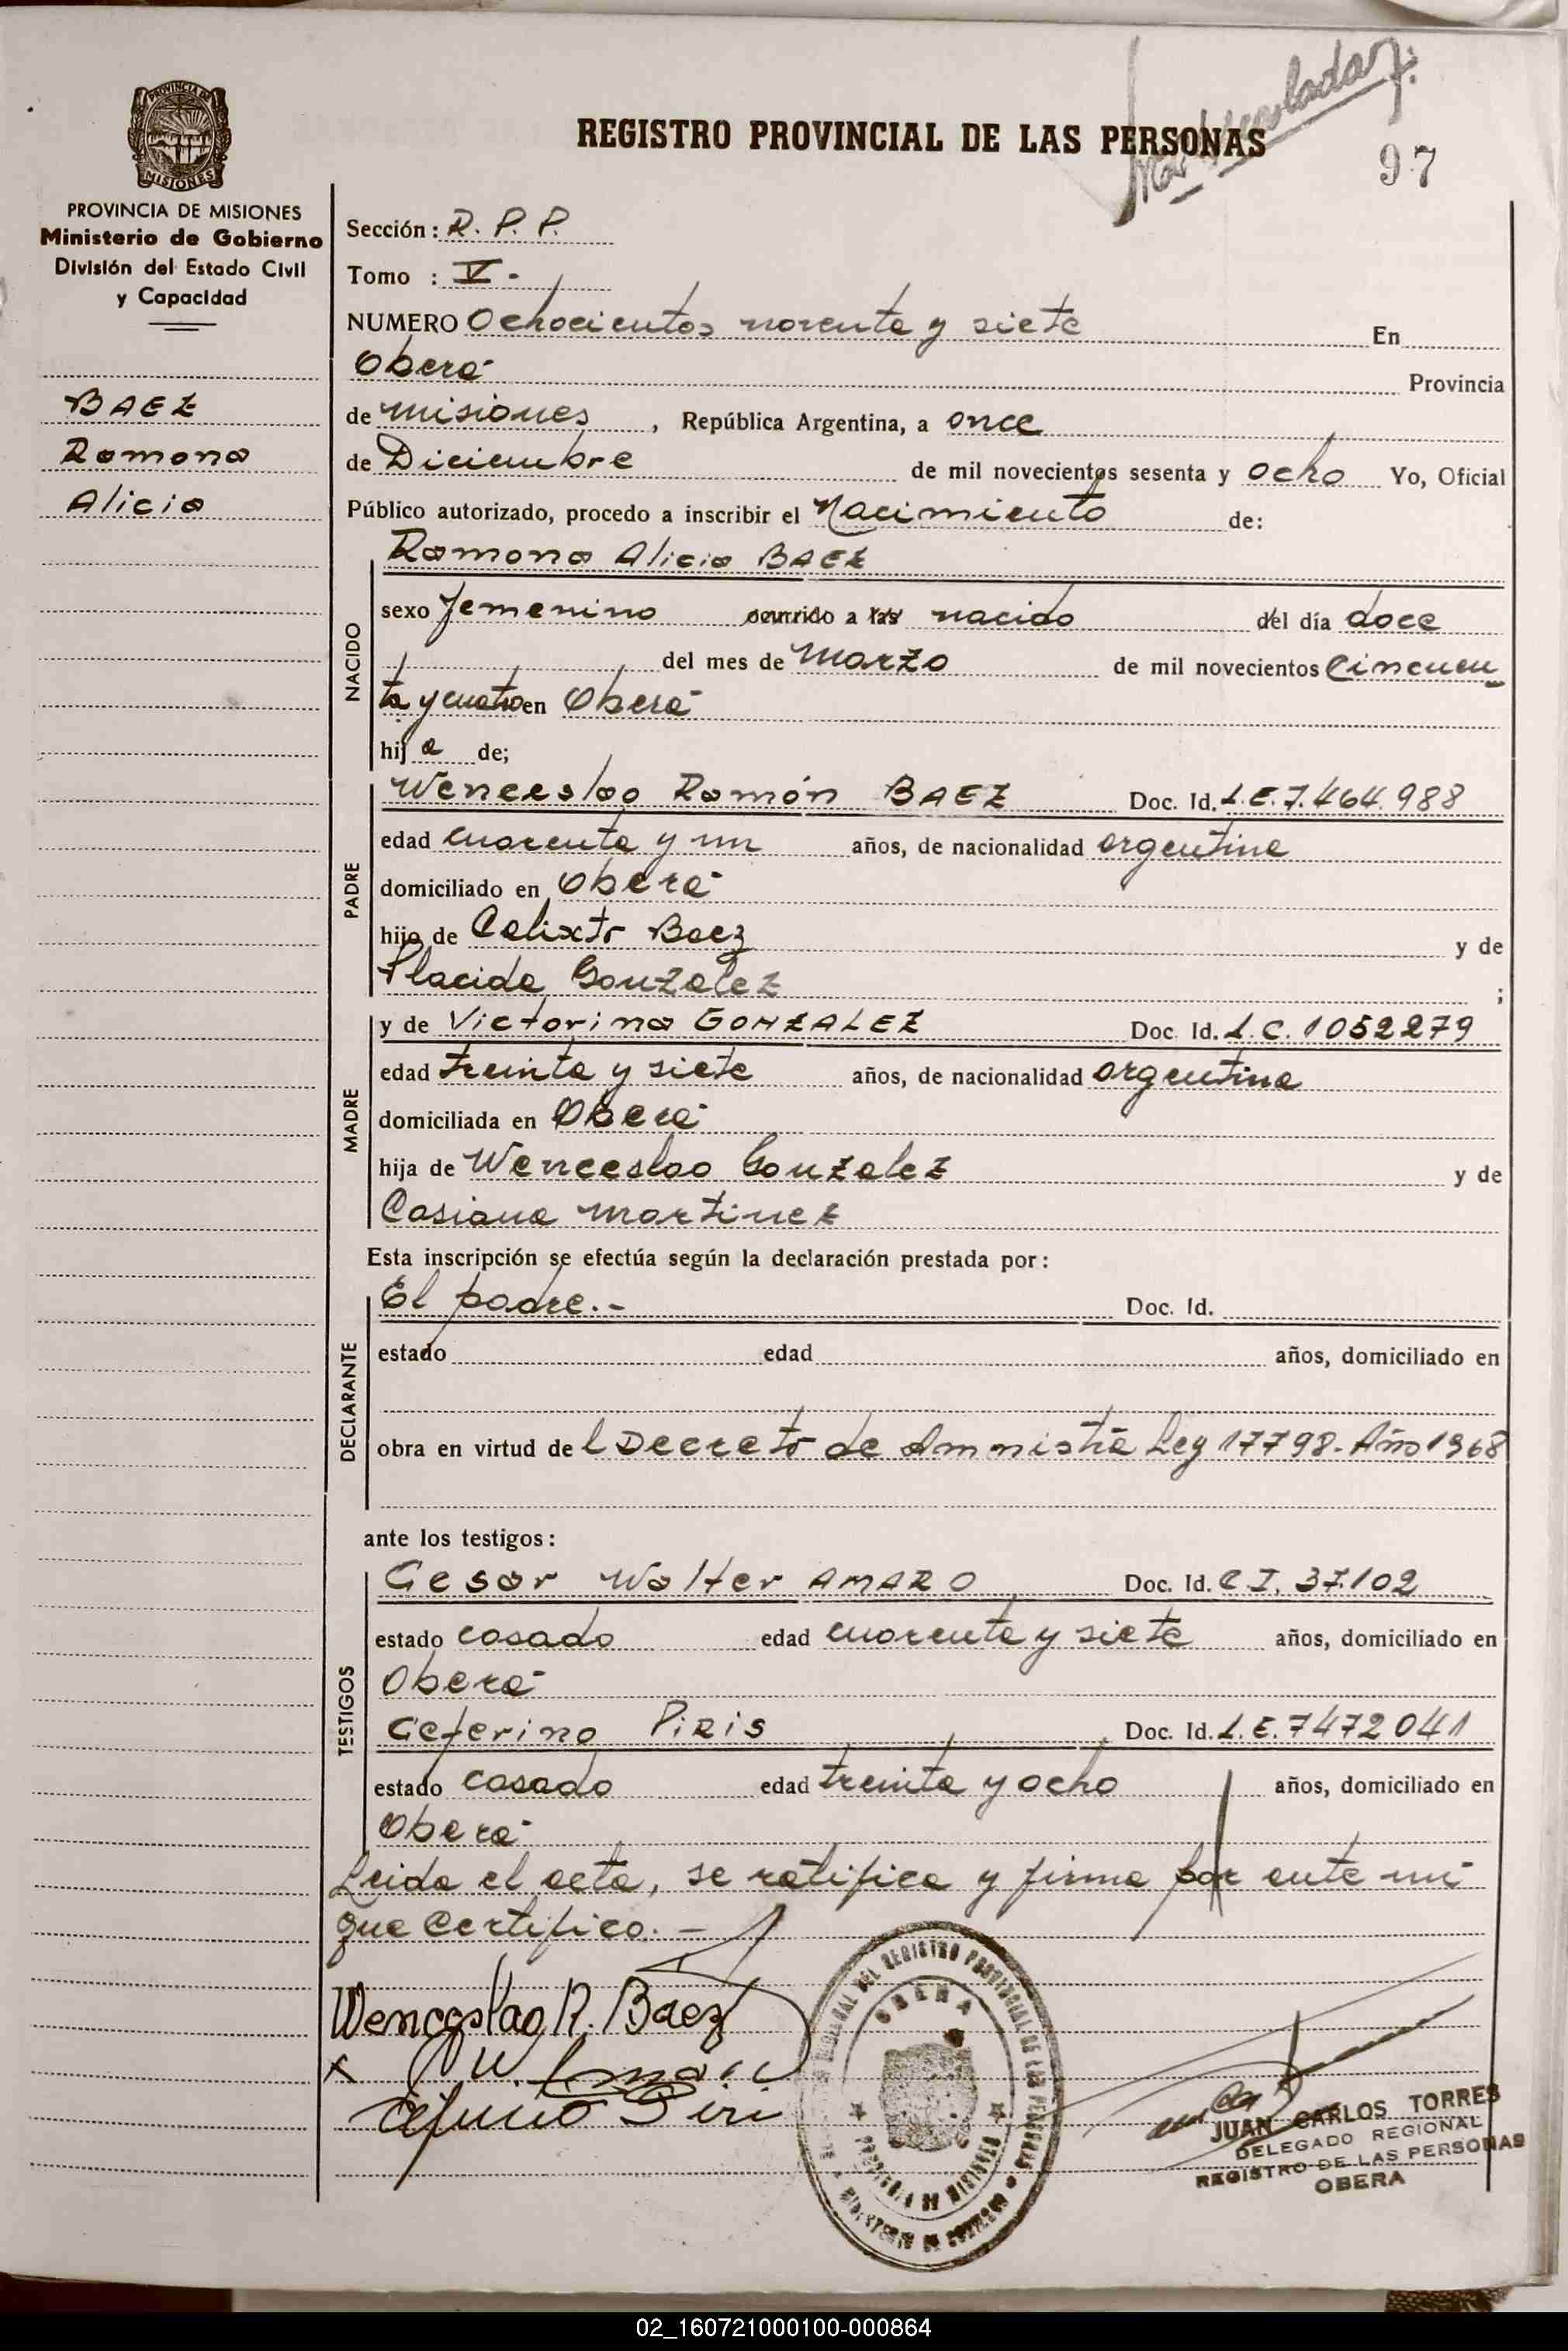 Matriculada
REGISTRO PROVINCIAL DE LAS PERSONAS
97
PROVINCIA DE MISIONES
PROVINCIA DE MISIONES
Ministerio de Gobierno
División del Estado Civil
y Capacidad
BAEZ
Ramona
Alicia
Sección: R. P. P.
Tomo : V -
NUMERO Ochocientos noventa y siete En
Oberá Provincia
de Misiones, República Argentina, a once
de Diciembre de mil novecientos sesenta y ocho Yo, Oficial
Público autorizado, procedo a inscribir el Nacimiento de:
NACIDO
Ramona Alicia BAEZ
sexo femenino ocurrido a las nacido del día doce
del mes de Marzo de mil novecientos Cincuen
ta y cuatro en Oberá
hija de;
PADRE
Wenceslao Ramón BAEZ Doc. Id. L.E. 7.464.988
edad cuarenta y un años, de nacionalidad argentina
domiciliado en Oberá
hijo de Calixto Baez y de
Placida Gonzalez ;
MADRE
y de Victorina GONZALEZ Doc. Id. L.C. 1052279
edad treinta y siete años, de nacionalidad argentina
domiciliada en Oberá
hija de Wenceslao Gonzalez y de
Casiana Martinez
Esta inscripción se efectúa según la declaración prestada por:
DECLARANTE
El padre.- Doc. Id.
estado edad años, domiciliado en
obra en virtud del Decreto de Amnistía Ley 17798- Año 1968
ante los testigos:
TESTIGOS
Cesar Walter AMARO Doc. Id. C I. 37.102
estado casado edad cuarenta y siete años, domiciliado en
Oberá
Ceferino PIRIS Doc. Id. L.E. 7472041
estado casado edad treinta y ocho años, domiciliado en
Oberá
Leida el acta, se ratifica y firma por ante mi
que certifico. -
Wenceslao R. Baez
REGIONAL DEL REGISTRO PROVINCIAL DE LAS PERSONAS
OBERA
PROVINCIA DE MISIONES
MINISTERIO DE GOBIERNO
JUAN CARLOS TORRES
DELEGADO REGIONAL
REGISTRO DE LAS PERSONAS
OBERA
02_160721000100-000864